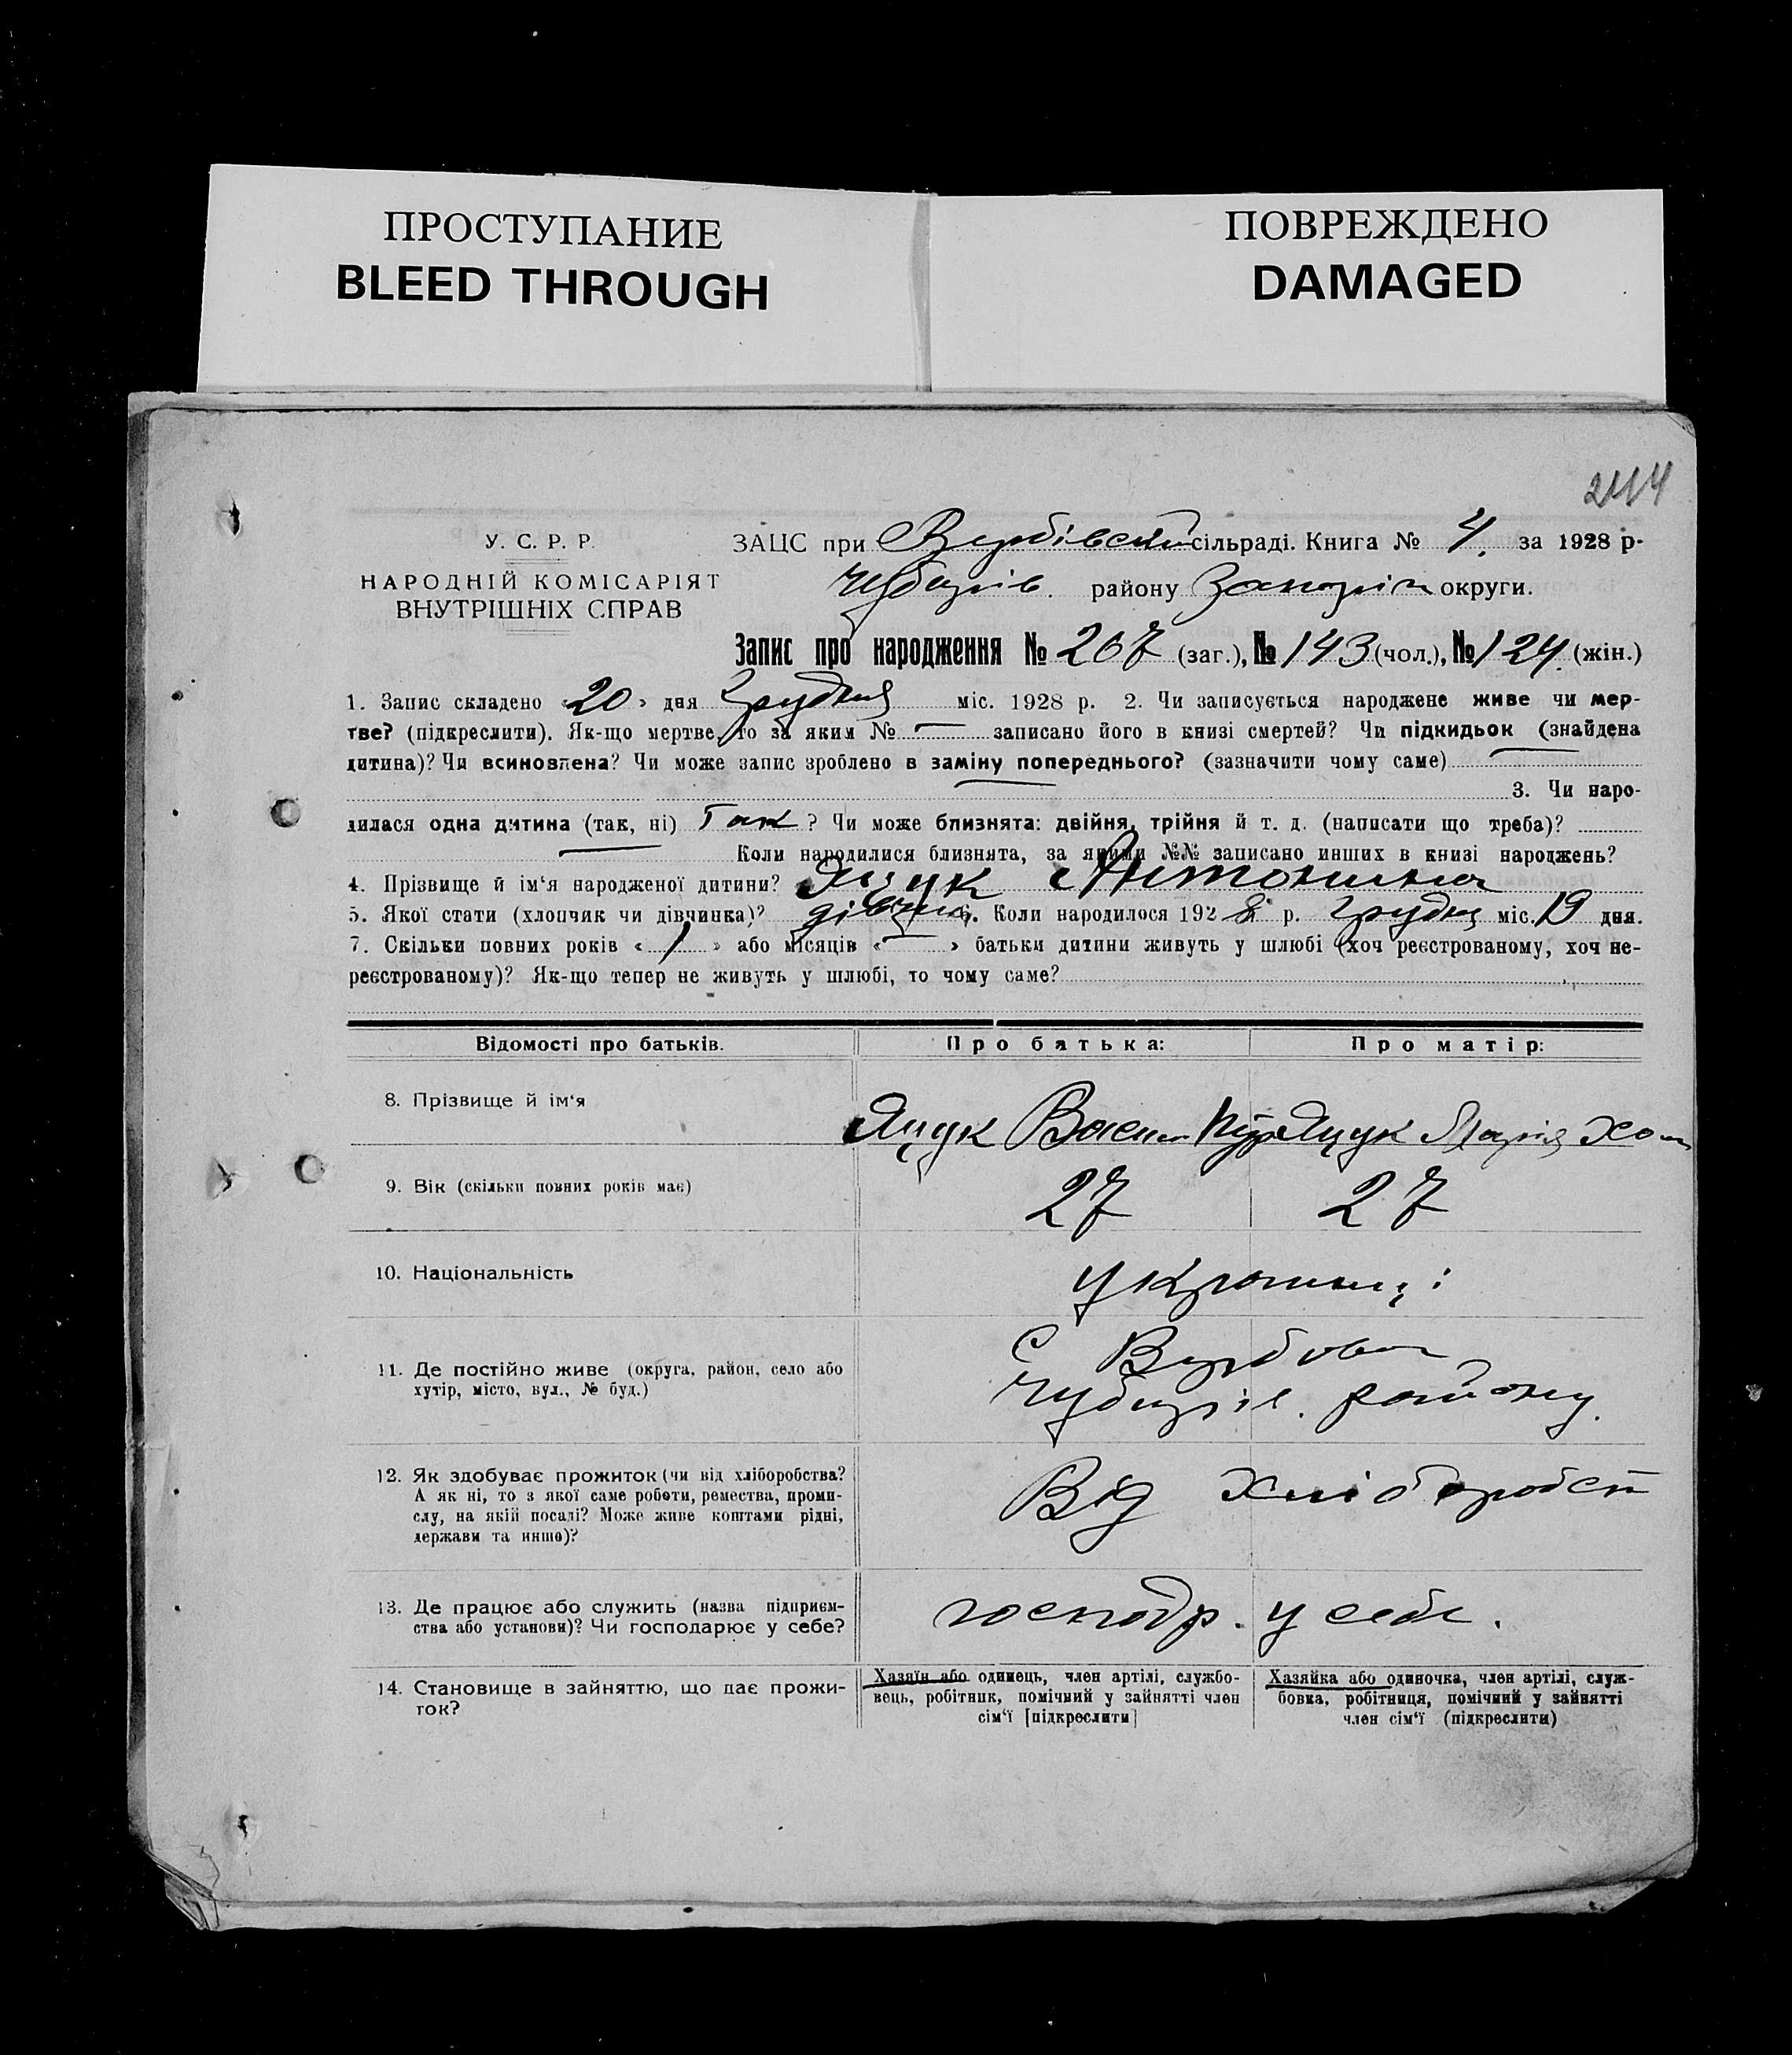 ПРОСТУПАНИЕ
BLEED THROUGH
ПОВРЕЖДЕНО
DAMAGED
У. С. Р. Р.
НАРОДНІЙ КОМІСАРІЯТ
ВНУТРІШНІХ СПРАВ
ЗАЦС при Вербівській сільраді. Книга № 4. за 1928 р.
Чубарів. району Запоріж округи.
Запис про народження № 267 (заг.), № 143 (чол.), № 124 (жін.)
1. Запис складено «20» дня Грудня міс. 1928 р. 2. Чи записується народжене живе чи мер-
тве? (підкреслити). Як-що мертве, то за яким № — записано його в книзі смертей? Чи підкидьок (знайдена
дитина)? Чи всиновлена? Чи може запис зроблено в заміну попереднього? (зазначити чому саме) —
3. Чи наро-
дилася одна дитина (так, ні) Так ? Чи може близнята: двійня, трійня й т. д. (написати що треба)?
— Коли народилися близнята, за якими №№ записано инших в книзі народжень?
4. Прізвище й ім'я народженої дитини? Яцук Антонина
5. Якої стати (хлопчик чи дівчинка)? дівчина 6. Коли народилося 1928 р. Грудня міс. 19 дня.
7. Скільки повних років «1» або місяців «—» батьки дитини живуть у шлюбі (хоч реєстрованому, хоч не-
реєстрованому)? Як-що тепер не живуть у шлюбі, то чому саме?
Відомості про батьків. Про батька: Про матір:
8. Прізвище й ім'я Яцук Васил Яцук Марія Хом
9. Вік (скільки повних років має) 27 27
10. Національність Українці
11. Де постійно живе (округа, район, село або
хутір, місто, вул., № буд.)
С Вербова
Чубарів. району.
12. Як здобуває прожиток (чи від хліборобства?
А як ні, то з якої саме роботи, ремества, проми-
слу, на якій посаді? Може живе коштами рідні,
держави та инше)?
Від Хліборобст
13. Де працює або служить (назва підприєм-
ства або установи)? Чи господарює у себе?
господр. у себе.
14. Становище в зайняттю, що дає прожи-
ток?
Хазяїн або одинець, член артілі, службо-
вець, робітник, помічний у зайнятті член
сім'ї [підкреслити]
Хазяйка або одиночка, член артілі, служ-
бовка, робітниця, помічний у зайнятті
член сім'ї (підкреслити)